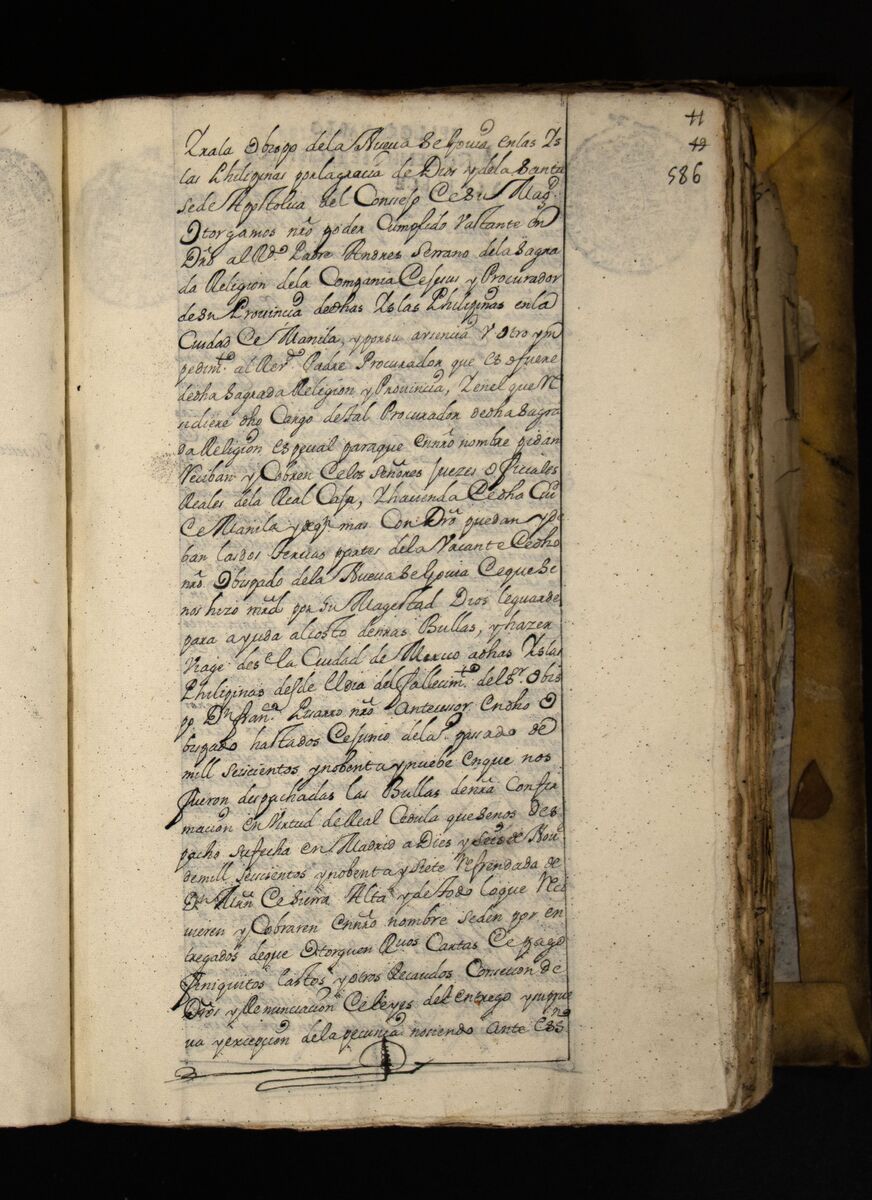 11
49
586
Zrala Obispo dela Nueva Segovia enlas Ys
las Philipinas porlagracia de Dios ydela Santa
sede Apostolica del Consejo Cesu Magd.
Otorgamos nro poder Cumplido Vastante en
Dro al Rdo Padre Andres Serrano dela Sagra
da Religion dela Compania Cejesus y Procurador
desu Provincia dedhas Yslas Philipinas enla
Ciudad Ce Manila, yporsu ausencia V otro ym
pedimto al Rero Padre Procurador que es ofuere
dedha Sagrada Religion y Provincia, Yenel que Re
sidiere dho Cargo detal Procurador dedha Sagra
da Religion especial paraque ennro nombre pidan
Reciban y Cobren Celos señores juezes oficiales
Reales dela Real Caja, Yhacienda Cedha Ciu
Ce Manila ydeqn mas Con Dro puedan yde
ban lasdos tercias partes dela Vacante Cedho
nro Obispado dela Nueva Segovia Ceque Se
nos hizo mrd por Su Magestad Dios leguarde
para ayuda alcosto denras Bullas, yhazer
Viage desta la Ciudad de Mexico adhas Yslas
Philipinas desde Eldia del fallecimto del Sr. Obis
po Dn Franco Pisarro nro Antecessor Endho O
bispado hastados Cejunio dela pasado de
mill seiscientos ynobenta ynuebe Enque nos
fueron despachadas las Bullas denra Confir
macion en Virtud deReal Cedula quesenos Des
pacho sufecha en Madrid a Dies y seis de Nove
demill seiscientos ynobenta y siete Refrendada de
Dn Mrn Ce Sierra Alta ydetodo loque Reci
vieren y Cobraren Ennro nombre seden por en
tregados deque Otorguen Rivos Cartas Ce pago
finiquitos lastos yotros Recaudos Concecion de
Dros yRenunciacion Celeyes del entrego ysuprue
va yexcepcion dela pecunia nosiendo ante Ess
no